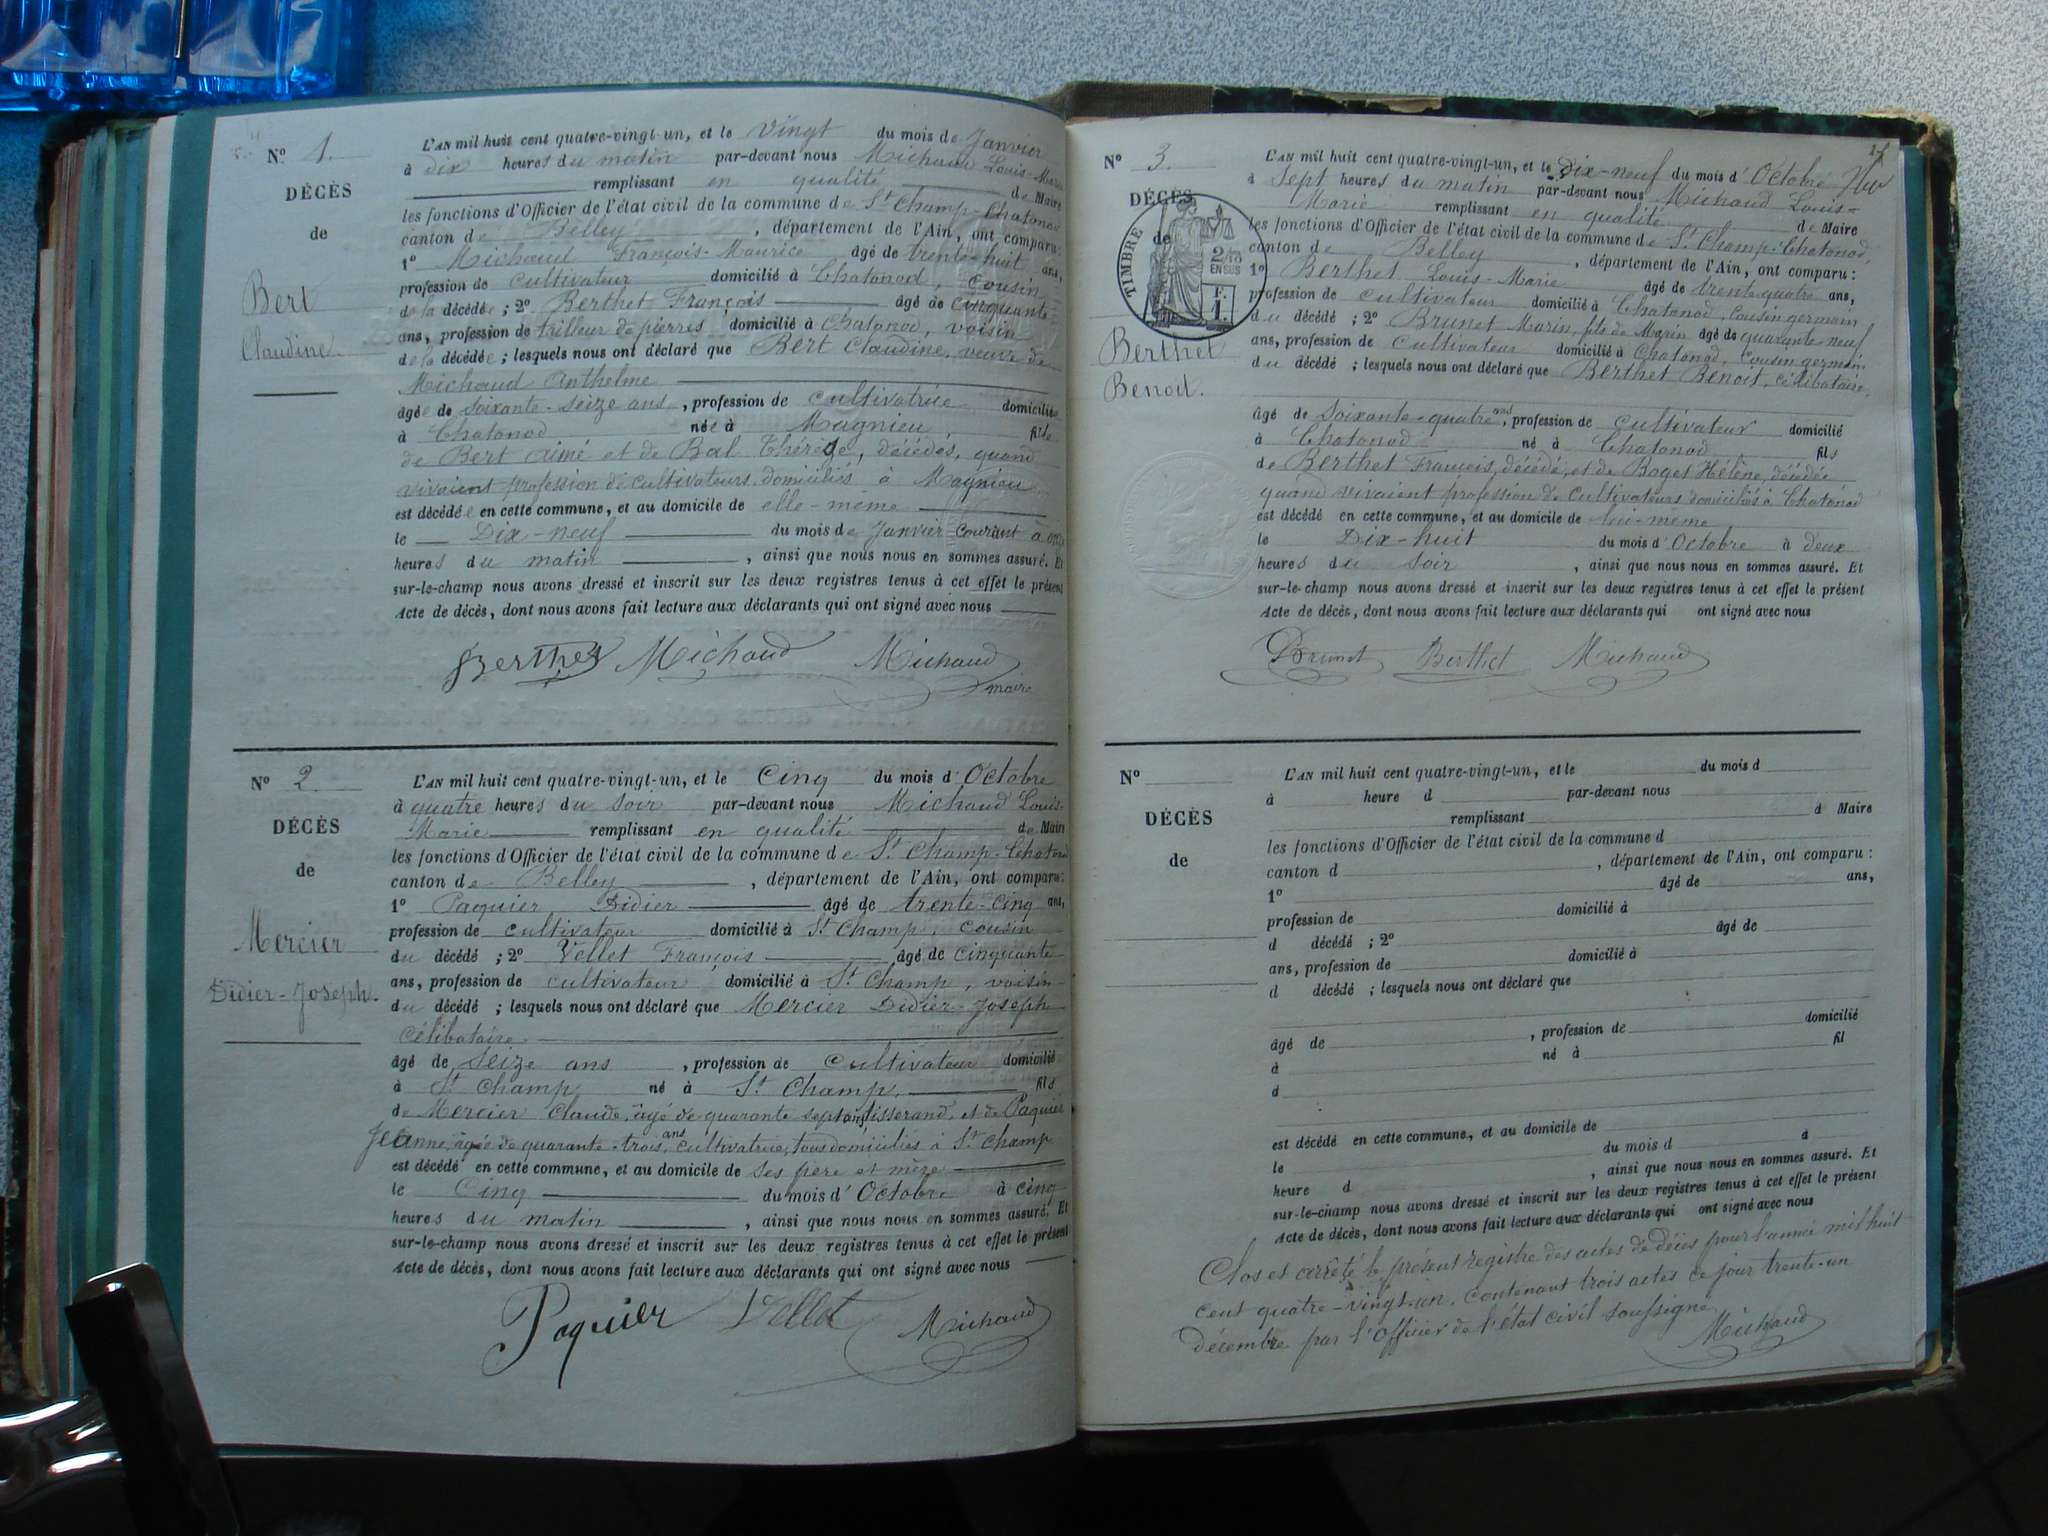 N° 1.
DÉCÈS
de
Bert
Claudine
L'AN mil huit cent quatre-vingt-un, et le Vingt du mois de Janvier
à dix heures du matin par-devant nous Michaud Louis-Marie
remplissant en qualité de Maire
les fonctions d'Officier de l'état civil de la commune de St Champ-Chatonod
canton de Belley, département de l'Ain, ont comparu:
1° Michaud François-Maurice âgé de trente-huit ans,
profession de cultivateur domicilié à Chatonod, cousin
de la décédée; 2° Berthet François âgé de cinquante
ans, profession de tailleur de pierres domicilié à Chatonod, voisin
de la décédée; lesquels nous ont déclaré que Bert Claudine, veuve de
Michaud Anthelme
âgée de soixante-seize ans, profession de cultivatrice domiciliée
à Chatonod née à Magnieu fille
de Bert Aimé et de Bal Thérèse, décédés, quand
vivaient profession de cultivateurs domiciliés à Magnieu
est décédée en cette commune, et au domicile de elle-même
le Dix-neuf du mois de Janvier courant à onze
heures du matin, ainsi que nous nous en sommes assuré. Et
sur-le-champ nous avons dressé et inscrit sur les deux registres tenus à cet effet le présent
Acte de décès, dont nous avons fait lecture aux déclarants qui ont signé avec nous
Berthet Michaud Michaud
maire
N° 2.
DÉCÈS
de
Mercier
Didier-Joseph.
L'AN mil huit cent quatre-vingt-un, et le Cinq du mois d'Octobre
à quatre heures du soir par-devant nous Michaud Louis-
Marie remplissant en qualité de Maire
les fonctions d'Officier de l'état civil de la commune de St Champ-Chatonod
canton de Belley, département de l'Ain, ont comparu:
1° Paquier Didier âgé de trente-cinq ans,
profession de cultivateur domicilié à St Champ, cousin
du décédé; 2° Vellet François âgé de cinquante
ans, profession de cultivateur domicilié à St Champ, voisin
du décédé; lesquels nous ont déclaré que Mercier Didier-Joseph
célibataire
âgé de seize ans, profession de cultivateur domicilié
à St Champ né à St Champ, fils
de Mercier Claude, âgé de quarante sept ans, tisserand, et de Paquier
Jeanne, âgée de quarante-trois ans, cultivatrice, tous domiciliés à St Champ
est décédé en cette commune, et au domicile de ses père et mère
le Cinq du mois d'Octobre à cinq
heures du matin, ainsi que nous nous en sommes assuré. Et
sur-le-champ nous avons dressé et inscrit sur les deux registres tenus à cet effet le présent
Acte de décès, dont nous avons fait lecture aux déclarants qui ont signé avec nous
Paquier Vellet Michaud
N° 3.
DÉCÈS
de
TIMBRE
2/10
EN SUS
F.
1.
Berthet
Benoit.
L'AN mil huit cent quatre-vingt-un, et le Dix-neuf du mois d'Octobre
à sept heures du matin par-devant nous Michaud Louis-
Marie remplissant en qualité de Maire
les fonctions d'Officier de l'état civil de la commune de St Champ-Chatonod,
canton de Belley, département de l'Ain, ont comparu:
1° Berthet Louis-Marie âgé de trente-quatre ans,
profession de cultivateur domicilié à Chatonod, cousin germain
du décédé; 2° Brunet Marin, fils de Marin âgé de quarante neuf
ans, profession de cultivateur domicilié à Chatonod, cousin germain
du décédé; lesquels nous ont déclaré que Berthet Benoit, célibataire,
âgé de soixante-quatre ans, profession de cultivateur domicilié
à Chatonod né à Chatonod fils
de Berthet François, décédé, et de Boget Hélène, décédée
quand vivaient profession de cultivateurs domiciliés à Chatonod
est décédé en cette commune, et au domicile de lui-même
le Dix-huit du mois d'Octobre à deux
heures du soir, ainsi que nous nous en sommes assuré. Et
sur-le-champ nous avons dressé et inscrit sur les deux registres tenus à cet effet le présent
Acte de décès, dont nous avons fait lecture aux déclarants qui ont signé avec nous
Brunet Berthet Michaud
N°
DÉCÈS
de
L'AN mil huit cent quatre-vingt-un, et le du mois d
à heure d par-devant nous
remplissant d Maire
les fonctions d'Officier de l'état civil de la commune d
canton d , département de l'Ain, ont comparu:
1° âgé de ans,
profession de domicilié à
d décédé; 2° âgé de
ans, profession de domicilié à
d décédé; lesquels nous ont déclaré que
âgé de , profession de domicilié
à né à fil
d
est décédé en cette commune, et au domicile de
le du mois d à
heure d , ainsi que nous nous en sommes assuré. Et
sur-le-champ nous avons dressé et inscrit sur les deux registres tenus à cet effet le présent
Acte de décès, dont nous avons fait lecture aux déclarants qui ont signé avec nous
Clos et arrêté le présent registre des actes de décès pour l'année mil huit
cent quatre-vingt-un, contenant trois actes ce jour trente-un
décembre par l'Officier de l'état civil soussigné
Michaud